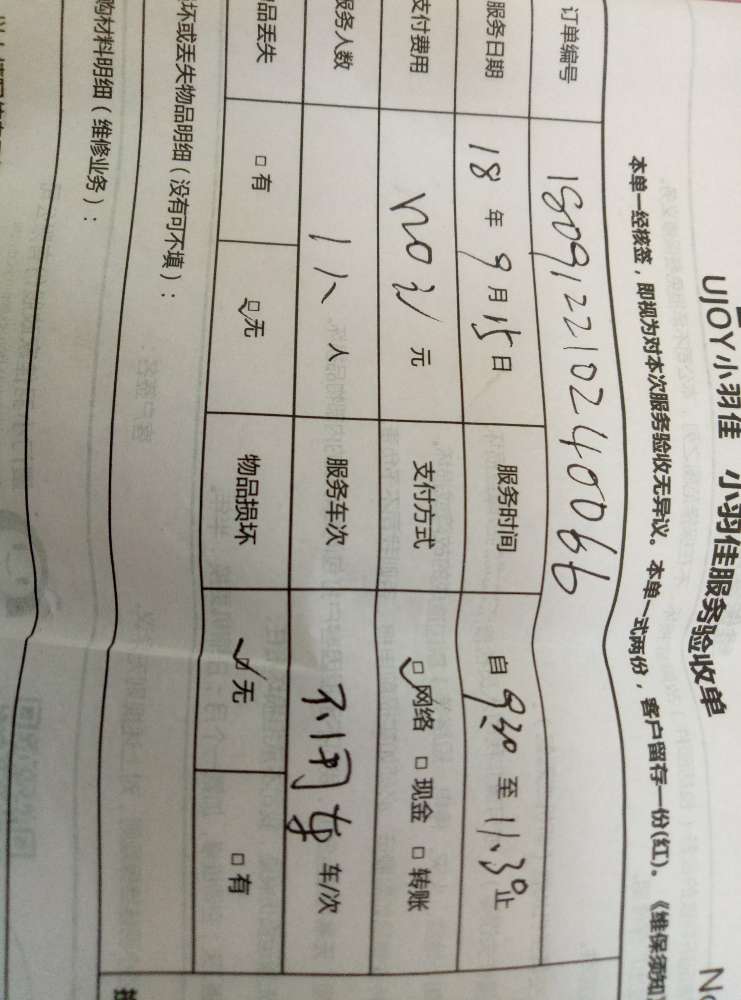 UJOY小羽佳 小羽佳服务验收单
本单一经核签，即视为对本次服务验收无异议。本单一式两份，客户留存一份(红)。《维保须知
订单编号 180912210240066
服务日期 18 年 9 月 15 日 服务时间 自 9:30 至 11:30 止
支付费用 元 支付方式 ☑网络 □现金 □转账
服务人数 1人 人 服务车次 不用车 车/次
品丢失 □有 ☑无 物品损坏 ☑无 □有
坏或丢失物品明细（没有可不填）：
购材料明细（维修业务）：